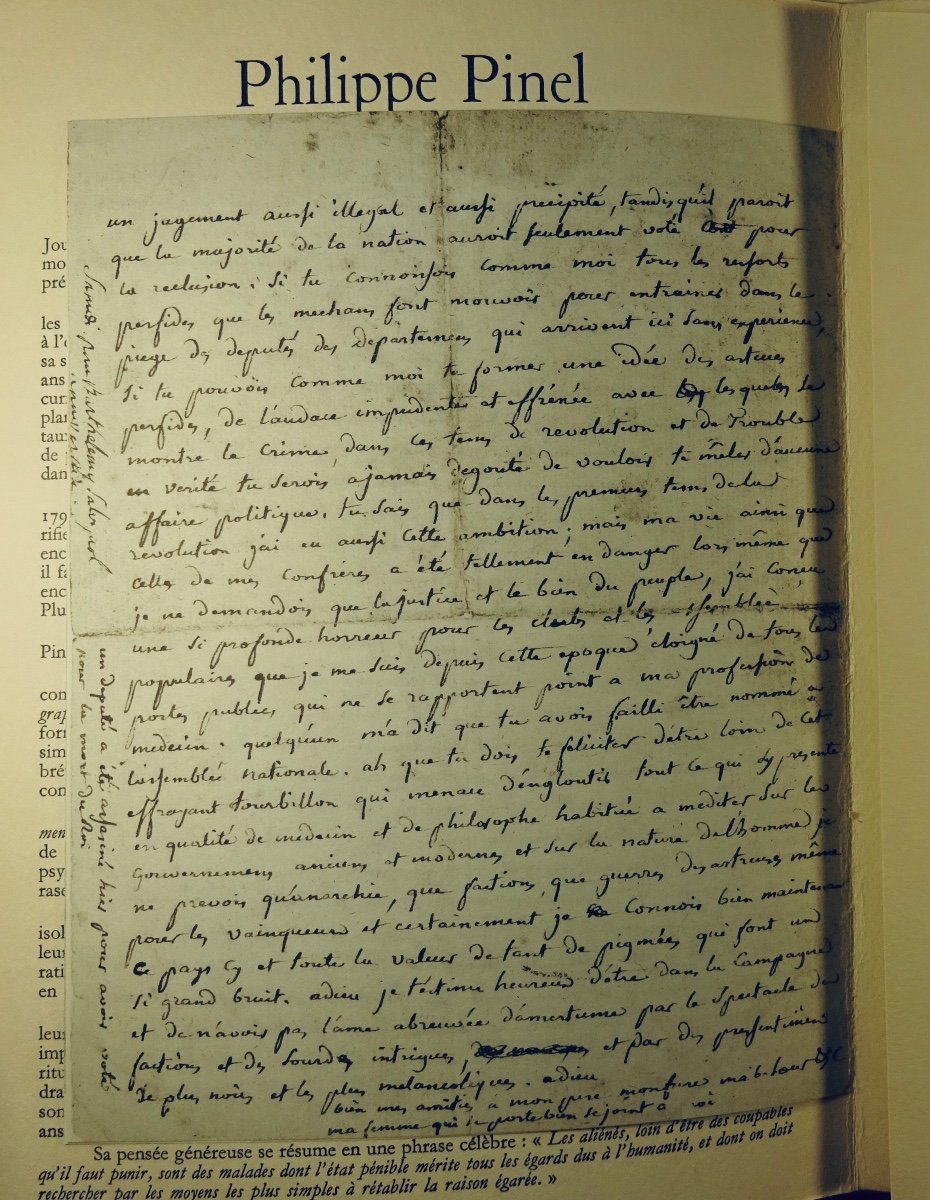 Philippe Pinel
un jugement aussi illegal et aussi precipité, tandisqu'il paroit
que la majorité de la nation auroit seulement voté pour
la reclusion. Si tu connoissois comme moi tous les ressorts
perfides que les mechans font mouvoir pour entrainer dans le
piege des deputés des departemens qui arrivent ici sans experience,
si tu pouvois comme moi te former une idée des astuces
perfides, de l'audace impudente et effrénée avec lesqueles se
montre le crime dans ces tems de revolution et de trouble
en verité tu serois ajamais degouté de vouloir te mêler d'aucune
affaire politique. tu sais que dans les premiers tems de la
revolution j'ai eu aussi cette ambition; mais ma vie ainsi que
celle de mes confrères a été tellement en danger lors même que
je ne demandois que la justice et le bien du peuple, j'ai concu
une si profonde horreur pour les clubs et les assemblées
populaires que je me suis depuis cette epoque éloigné de tous les
postes publics qui ne se rapportent point a ma profession de
medecin. quelqu'un m'a dit que tu avois failli être nommé a
l'assemblée nationale. ah que tu dois te feliciter d'etre loin de cet
effrayant tourbillon qui menace d'engloutir tout ce qui s'y presente
en qualité de medecin et de philosophe habitué a mediter sur les
gouvernemens anciens et modernes et sur la nature de l'homme je
ne prevois qu'anarchie, que factions, que guerres desastreuses même
pour les vainqueurs et certainement je connois bien maintenant
ce pays cy et toute la valeur de tant de pigmées qui font un
si grand bruit. adieu je t'estime heureux d'être dans la campagne
et de n'avoir pas l'ame abreuvée d'amertume par le spectacle des
factions et des sourdes intrigues, et par des pressentimens
le plus noirs et les plus melancoliques. adieu
bien mes amitiés a mon pere mon frere
ma femme qui se porte bien se joint a
un deputé a été assasiné hier pour avoir voté
pour la mort du Roi
Jou
mo
pré
les
à l'
sa s
ans
cur
plan
taux
de
dan
179
rifie
enc
il fa
enc
Plu
Pin
con
grap
forr
sim
bré
con
men
de
psy
rase
isol
leur
rati
en
leur
imp
ritu
dra
son
ans
Sa pensée généreuse se résume en une phrase célèbre : « Les aliénés, loin d'être des coupables
qu'il faut punir, sont des malades dont l'état pénible mérite tous les égards dus à l'humanité, et dont on doit
rechercher par les moyens les plus simples à rétablir la raison égarée. »